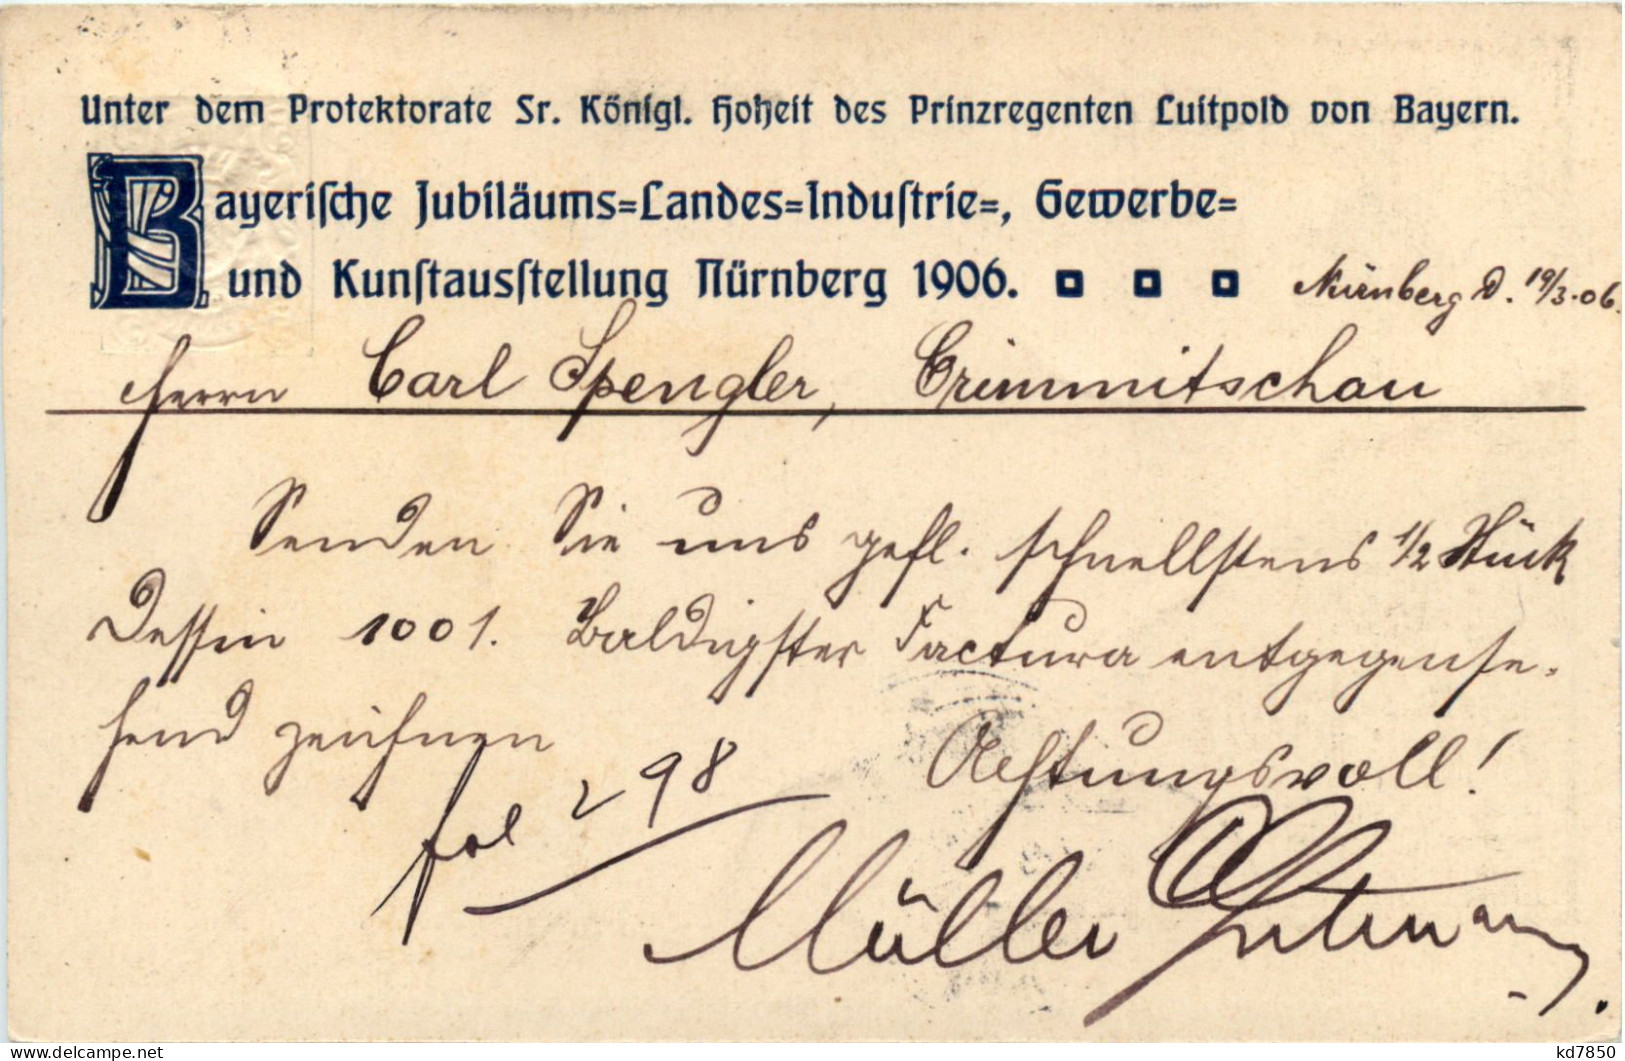 Unter dem Protektorate Sr. Königl. Hoheit des Prinzregenten Luitpold von Bayern.
Bayeriſche Jubiläums=Landes=Induſtrie=, Gewerbe=
und Kunſtausſtellung Nürnberg 1906.
Nürnberg d. 19/3.06.
Herrn Carl Spengler, Crimmitschau
Senden Sie uns gefl. schnellstens 1/2 Stück
Dessin 1001. Baldigster Factura entgegense-
hend zeichnen
Achtungsvoll!
fol 298
Müller
delcampe.net
kd7850